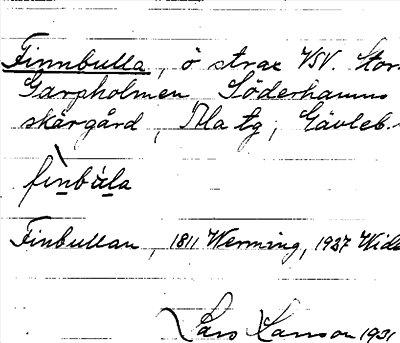 Finnbulla, ö strax VSV. Stor
Garpholmen Söderhamns
skärgård, Ala tg, Gävleb.
fìnbùla
Finbullan, 1811 Werming, 1927 Wids
Lars Larsson 1931